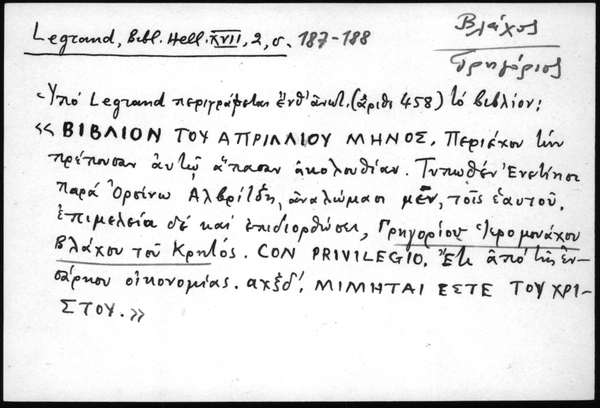 Legrand, Bibl. Hell. XVII, 2, σ. 187-188
Βλάχος
Γρηγόριος
Ὑπό Legrand περιγράφεται ἐνθ' ἀνωτ. (ἀριθ. 458) τό βιβλίον:
«ΒΙΒΛΙΟΝ ΤΟΥ ΑΠΡΙΛΛΙΟΥ ΜΗΝΟΣ. Περιέχον τήν
πρέπουσαν αὐτῷ ἅπασαν ἀκολουθίαν. Τυπωθέν Ἐνετίησι
παρά Ὀρσίνῳ Ἀλβρίτζῃ, ἀναλώμασι μέν, τοῖς ἑαυτοῦ,
ἐπιμελείᾳ δέ καί ἐπιδιορθώσει, Γρηγορίου Ἱερομονάχου
Βλάχου τοῦ Κρητός. CON PRIVILEGIO. Ἔτει ἀπό τῆς ἐν-
σάρκου οἰκονομίας. αχξδ'. ΜΙΜΗΤΑΙ ΕΣΤΕ ΤΟΥ ΧΡΙ-
ΣΤΟΥ.»